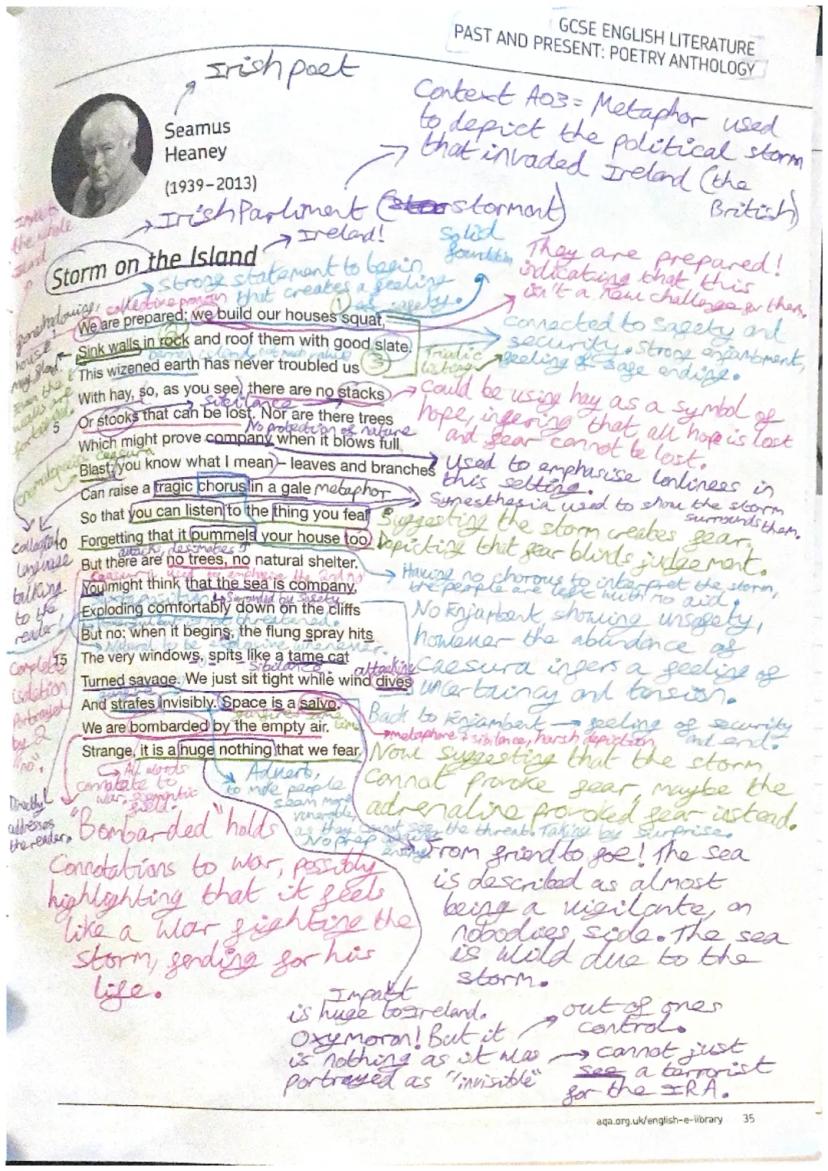 GCSE ENGLISH LITERATURE
PAST AND PRESENT: POETRY ANTHOLOGY
Irish poet
Seamus
Heaney
(1939–2013)
Context AO3 = Metaphor used
to depict the political storm
that invaded Ireland (the
British)
Irish Parliment (stormont)
Ireland!
Storm on the Island
Solid
foundation
Strong statement to begin
that creates a feeling
of safety.
collective pronoun
They are prepared!
indicating that this
isn't a new challenge for them.
We are prepared: we build our houses squat,
Sink walls in rock and roof them with good slate.
This wizened earth has never troubled us
With hay, so, as you see, there are no stacks
5 Or stooks that can be lost. Nor are there trees
Which might prove company when it blows full
Blast: you know what I mean – leaves and branches
Can raise a tragic chorus in a gale
So that you can listen to the thing you fear
10 Forgetting that it pummels your house too.
But there are no trees, no natural shelter.
You might think that the sea is company,
Exploding comfortably down on the cliffs
But no: when it begins, the flung spray hits
15 The very windows, spits like a tame cat
Turned savage. We just sit tight while wind dives
And strafes invisibly. Space is a salvo.
We are bombarded by the empty air.
Strange, it is a huge nothing that we fear.
1
2
3
Triadic
listing
connected to safety and
security. Strong enjambment,
feeling of safe ending.
sibilance
No protection of nature
caesura
metaphor
could be using hay as a symbol of
hope, infering that all hope is lost
and fear cannot be lost.
Used to emphasise lonliness in
this setting.
Synesthesia used to show the storm
surrounds them.
Suggesting the storm creates fear,
Depicting that fear blinds judgement.
Having no chorous to interpret the storm,
the people are left with no aid!
No Enjambent, showing unsafety,
however the abundance of
Caesura infers a feeling of
uncertainty and tension.
Sibilance
attacking
Back to Enjambent → feeling of security
and end.
metaphor + sibilance, harsh depiction
Now suggesting that the storm
cannot provoke fear, maybe the
adrenaline provoked fear instead.
collaquial
language
talking
to the
reader!
Complete
isolation
Portrayed
by 2
"no".
Directly
addresses
the reader.
All words
connatate to
war, semantic
field.
Adverb,
to make people
seem more
vunerable,
as they cannot see the threat. Taking by surprise.
"Bombarded" holds
Connotations to war, possibly
highlighting that it feels
like a war fighting the
storm, fending for his
life.
From friend to foe! The sea
is described as almost
being a vigilante, on
nobodies side. The sea
is wild due to the
storm.
Impact
is huge to Ireland.
Oxymoron! But it
is nothing as it was
portrayed as "invisible"
out of ones
control.
cannot just
see a terrorist
for the IRA.
aqa.org.uk/english-e-library 35